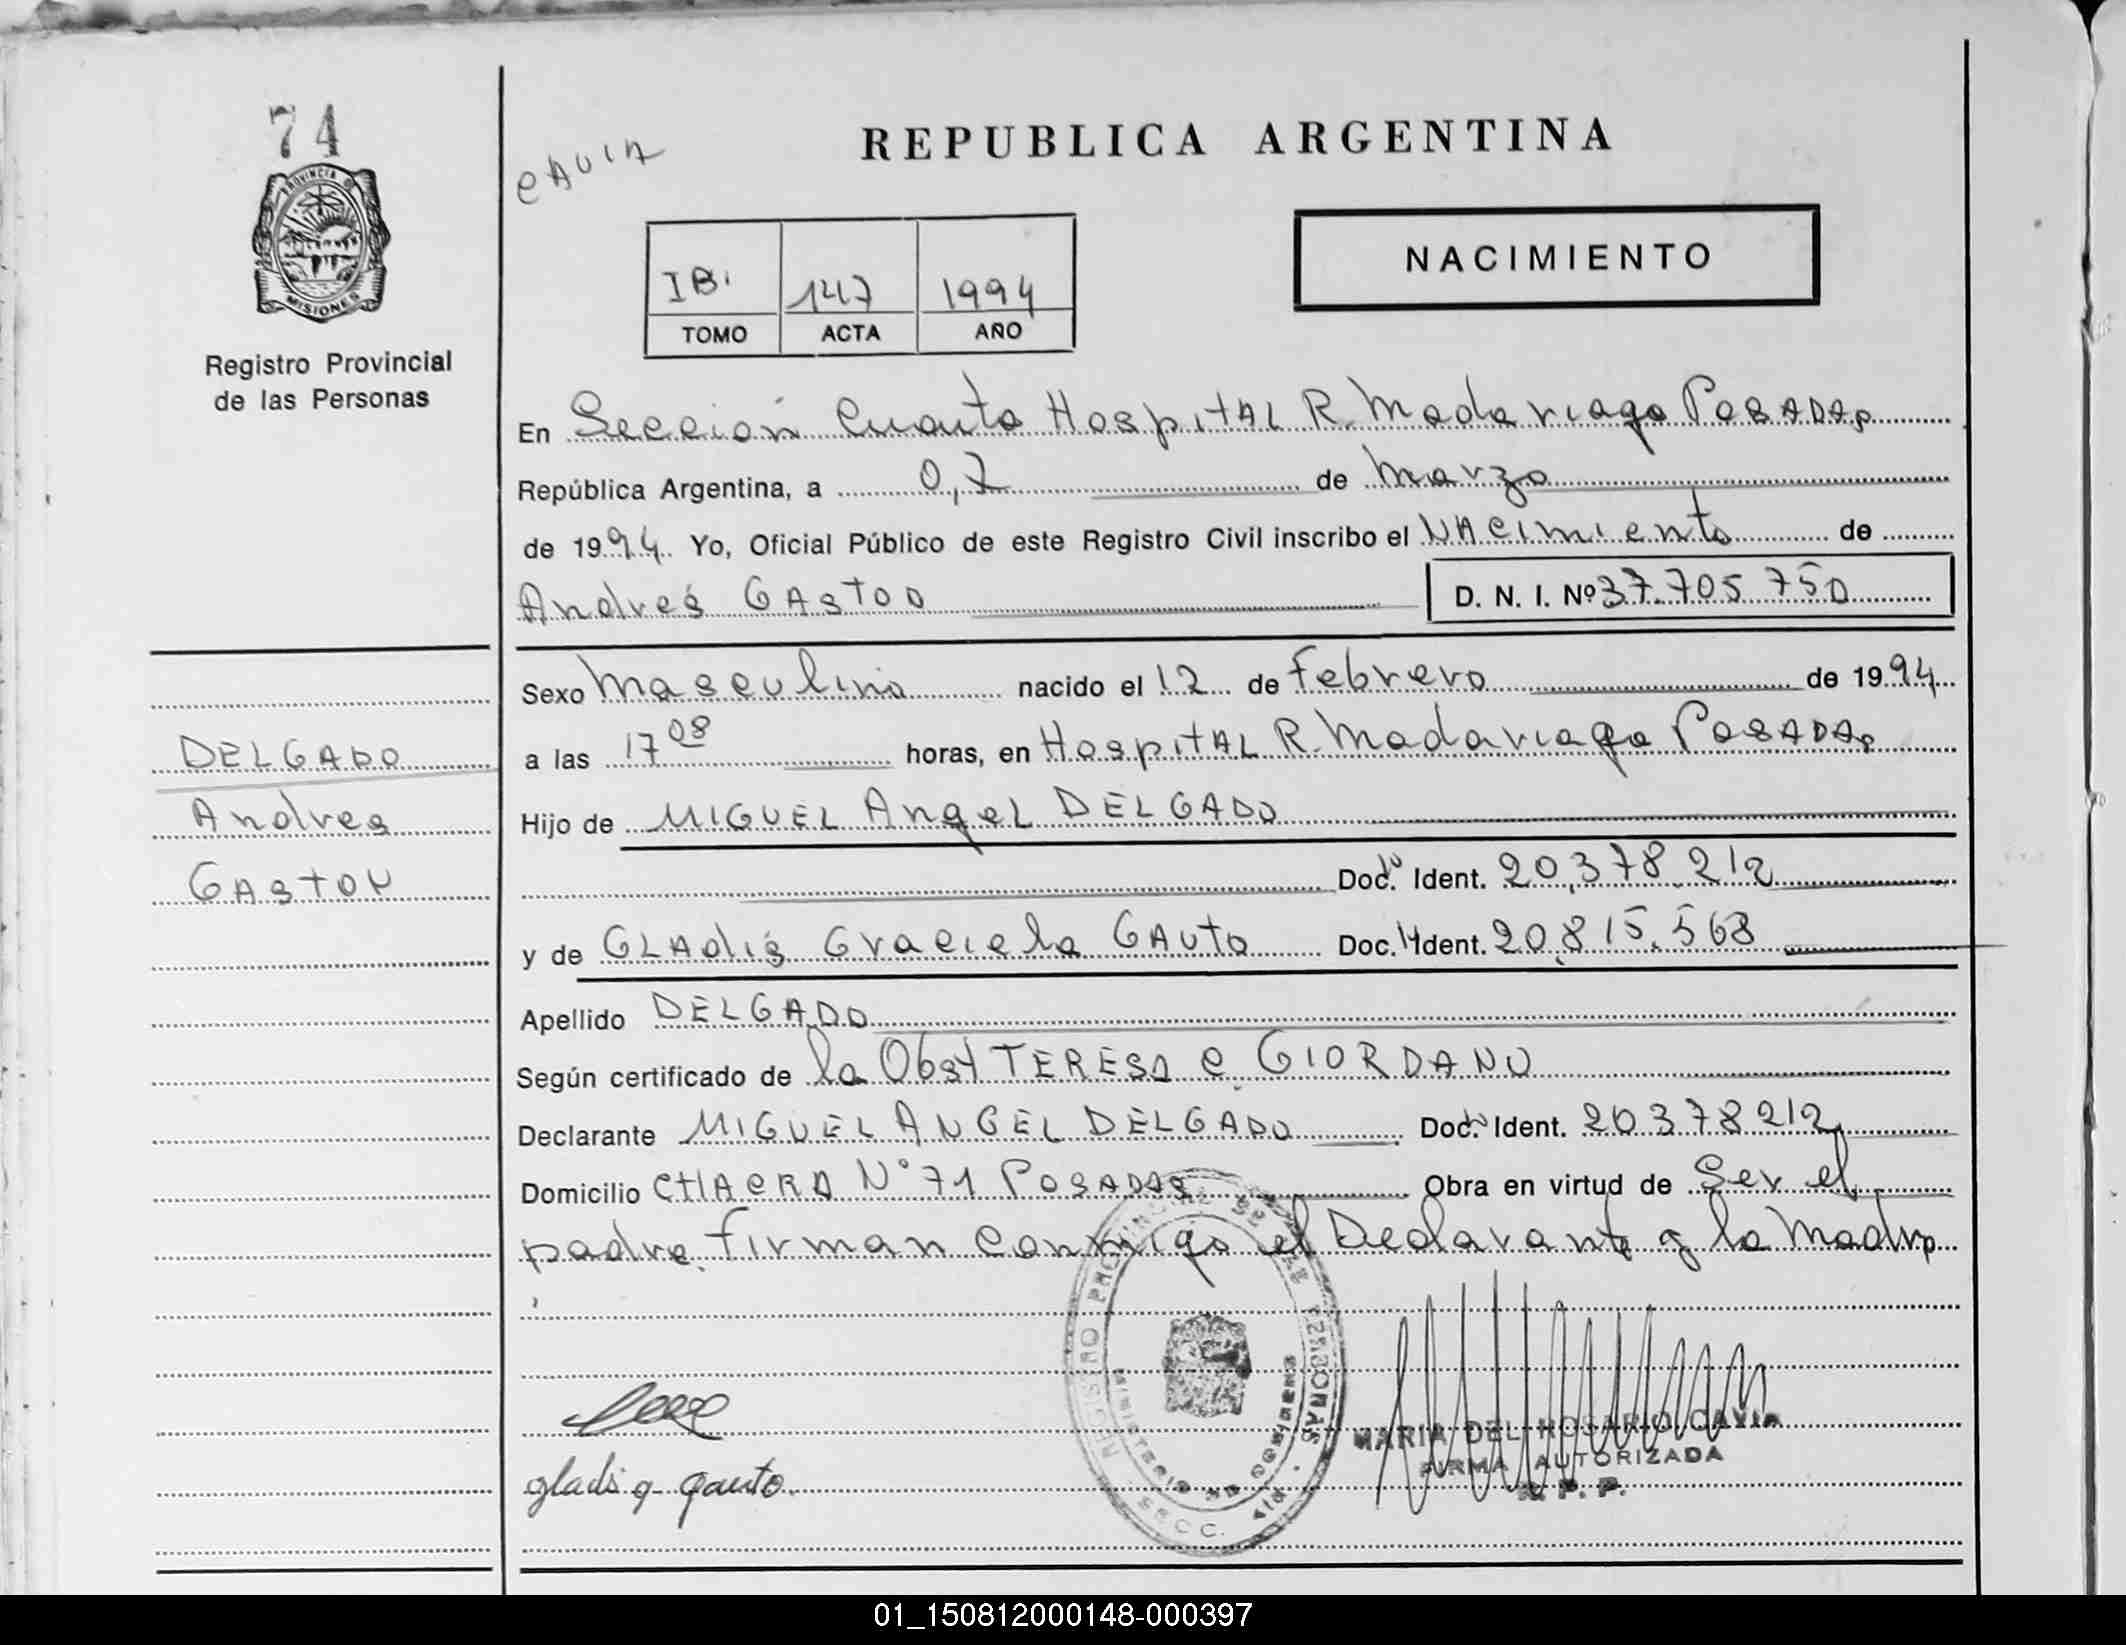 74
PROVINCIA DE
MISIONES
Registro Provincial
de las Personas
CAVIA
REPUBLICA ARGENTINA
NACIMIENTO
IBi 147 1994
TOMO ACTA AÑO
En Sección Cuarta Hospital R. Madariaga Posadas
República Argentina, a 07 de Marzo
de 1994. Yo, Oficial Público de este Registro Civil inscribo el Nacimiento de
Andrés GASTON D. N. I. Nº 37.705.750
Sexo Masculino nacido el 12 de Febrero de 1994
a las 17 08 horas, en Hospital R. Madariaga Posadas
Hijo de MIGUEL Angel DELGADO
Doc. Ident. 20.378.212
y de GLAdis Graciela GAuto Doc. Ident. 20.815.568
Apellido DELGADO
Según certificado de la Obst TERESA C. GIORDANO
Declarante MIGUEL ANGEL DELGADO Doc. Ident. 20378212
Domicilio CHACRA N° 71 POSADAS Obra en virtud de Ser el
padre. Firman Conmigo el Declarante y la Madre
DELGADO
Andres
GASTON
gladis g. gauto.
REGISTRO PROVINCIAL DE LAS PERSONAS
MINISTERIO DE GOBIERNO
MARIA DEL ROSARIO CAVIA
FIRMA AUTORIZADA
R. P. P.
01_150812000148-000397